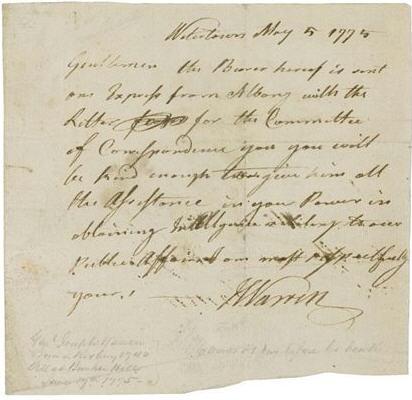 Watertown May 5 1775
Gentlemen the Bearer hereof is sent
one Express from Albany with the
Letter for the Committee
of Correspondence you you will
be kind enough to give him all
the Assistance in your Power in
obtaining Intelligence relating to our
Publick Affairs I am most respectfully
yours,
J Warren
Gen Joseph Warren
Born in Roxbury 1740
Killed Bunker Hill
June 17th 1775
before his death